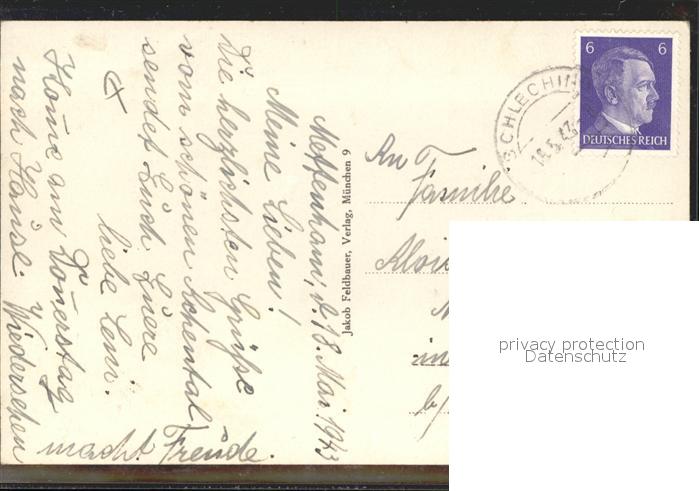 Mettenham, d. 18. Mai 1943
Meine Lieben!
Die herzlichsten Grüße
vom schönen Achental
sendet Euch Euere
liebe Leni.
Kome am Donerstag
nach Hause. Wiedersehen
macht Freude.
Jakob Feldbauer, Verlag, München 9
6 6
DEUTSCHES REICH
SCHLECHIN
18.5.43
An
Familie
Aloi
in
b/
privacy protection
Datenschutz